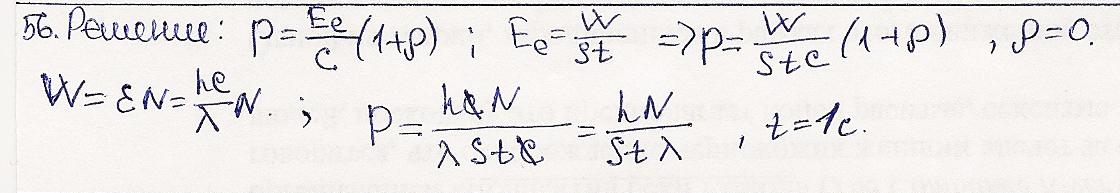 56. Решение: p = Ee/c (1+ρ) ; Ee = W/St => p = W/Stc (1+ρ) , ρ = 0.
W = εN = hc/λ N ; p = hcN/λStc = hN/Stλ , t = 1с.